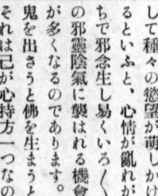 して種々の慾望が萌しか
るといふと、心情が亂れが
ちで邪念生し易くいろ〱
の邪靈陰氣に襲はれる機會
が多くなるのであります。
鬼を出さうと佛を生まうと
それは己が心持方一つなの